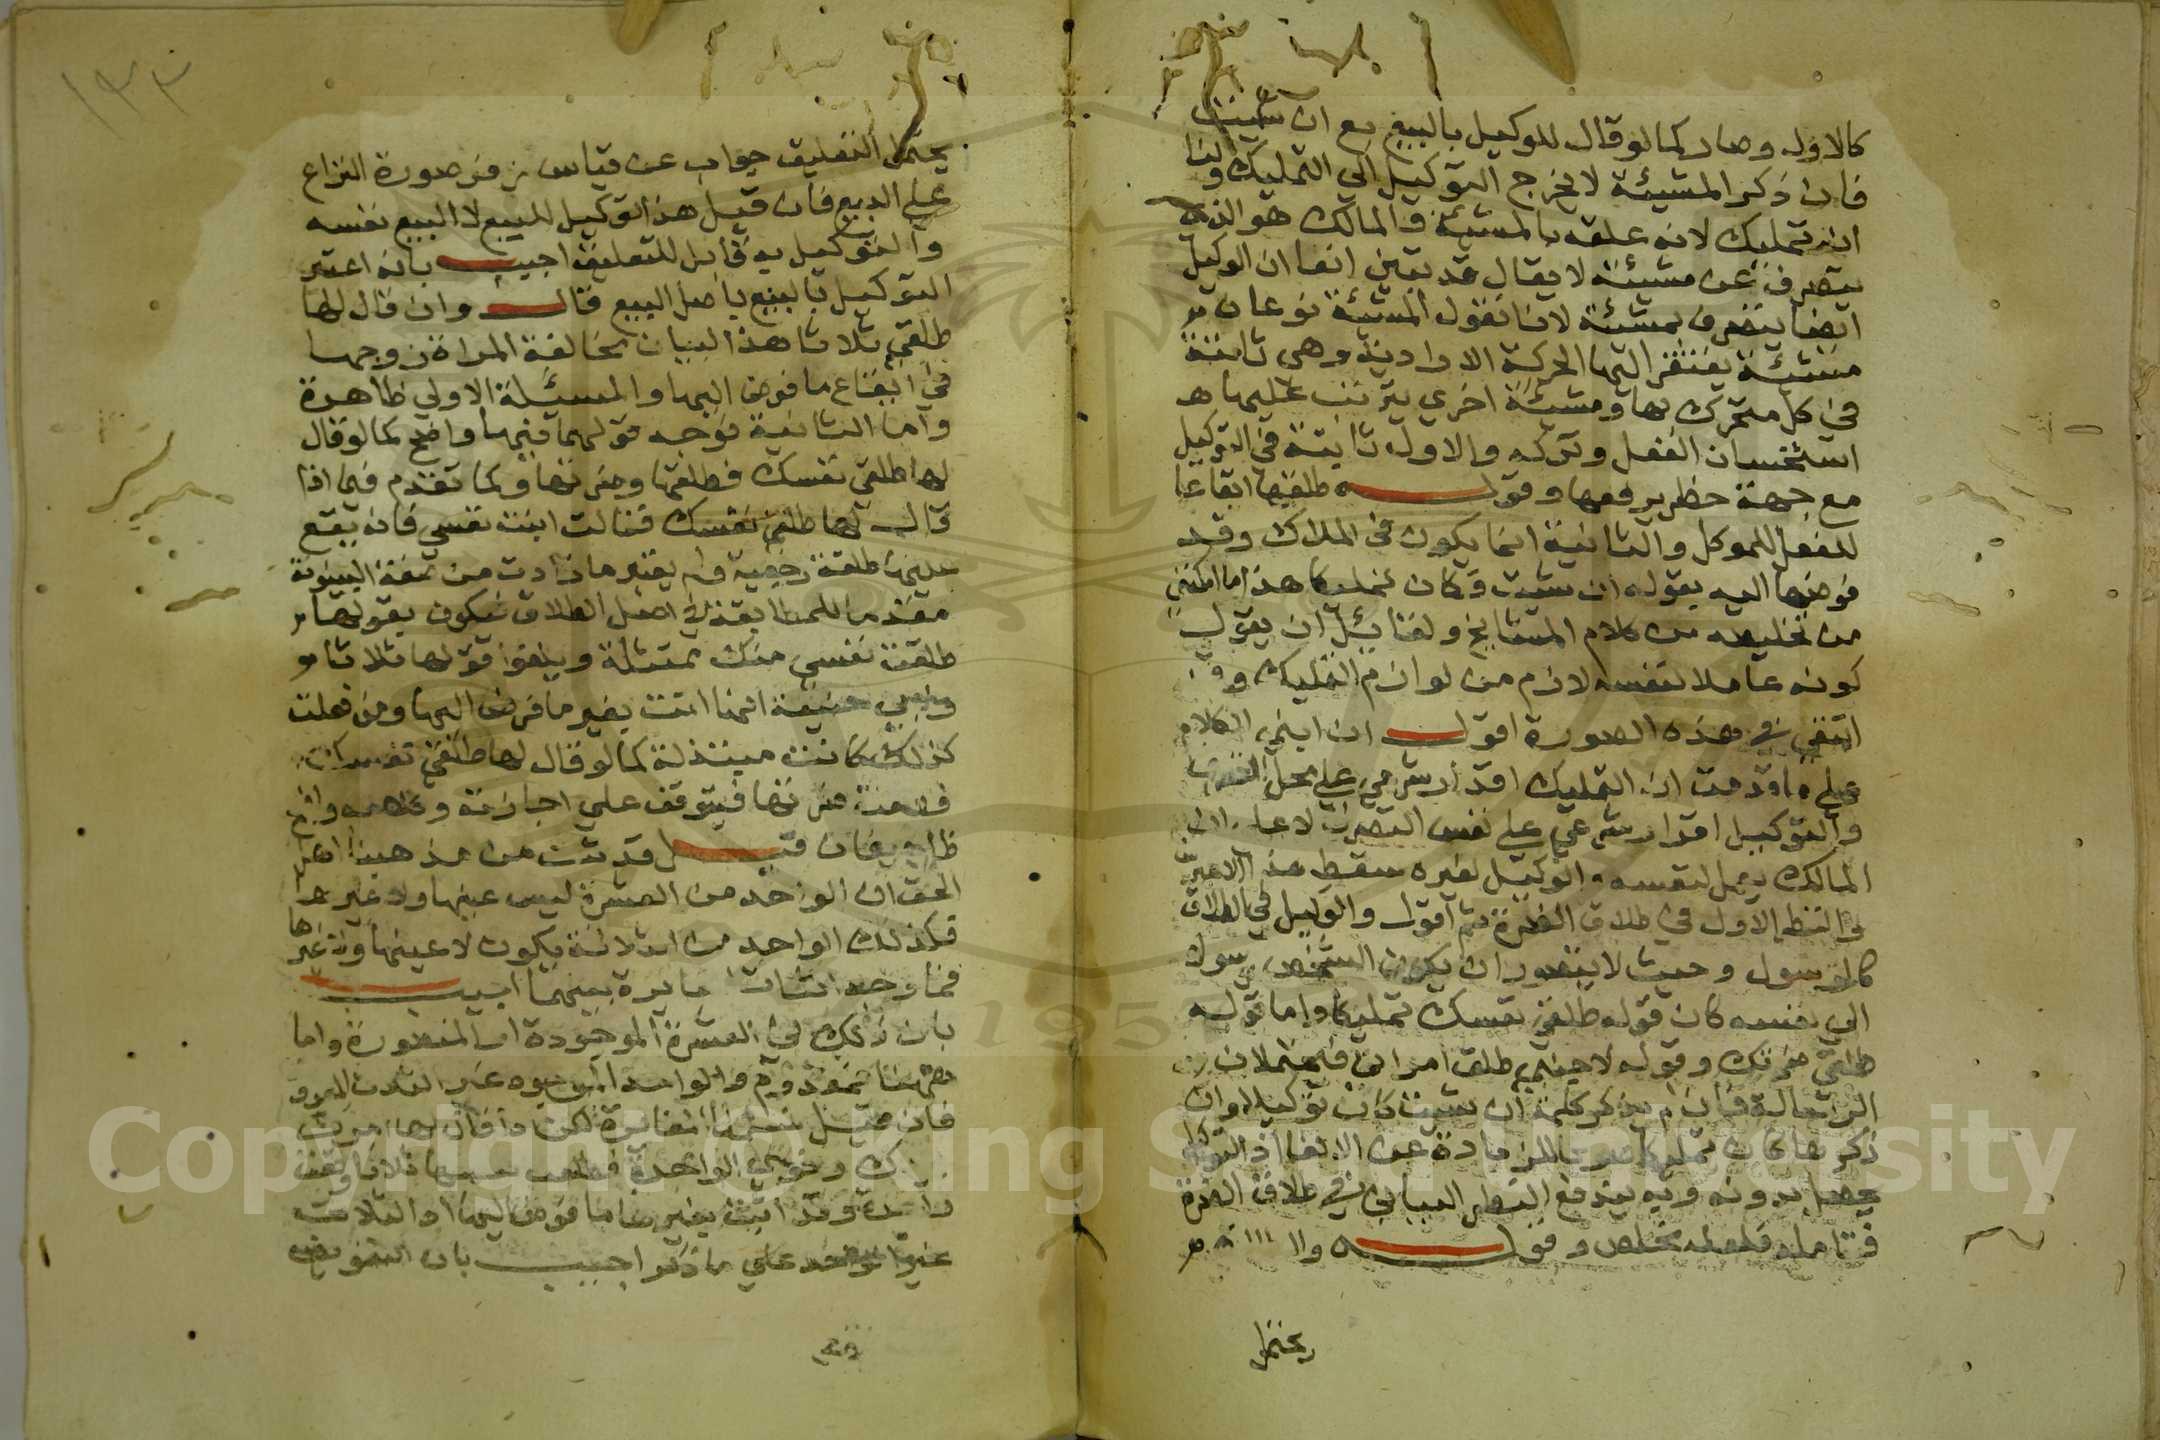 كالاول وصار كما لو قال للوكيل بالبيع بع ان شئت
فان ذكر المشيئة لا يخرج التوكيل الي التمليك ولنا
انه تمليك لانه علقه بالمشيئة والمالك هو الذي
يتصرف عن مشيئة لا يقال قد بقين انفا ان الوكيل
ايضا يتصرف بمشيئة لانا نقول المشيئة نوعان
مشيئة يفتقر اليها الحركة الارادية وهي ثابتة
في كل متحرك بها ومشيئة اخري يترتب عليها
استحسان الفعل وتركه والاول ثابتة في التوكيل
مع جهة حظر يرفعها وقوله طلقيها ايقاعا
للفعل للموكل والثانية انما يكون في الملاك وقد
فوضها اليه بقوله ان شئت فكان تمليكا هذا ما امكنني
من تخليصه من كلام المشايخ ولقائل ان يقول
كونه عاملا لنفسه لازم من لوازم التمليك وقد
انتفي في هذه الصورة اقول ان ابني الكلام
علي ما قدمت ان التمليك اقدار شرعي علي محل التصرف
والتوكيل اقدار شرعي علي نفس التصرف لا علي ان
المالك يعمل لنفسه والوكيل لغيره سقط هذا الاعتراض
والنظر الاول في طلاق الضرة ثم اقول والوكيل في الطلاق
كالرسول وحيث لا يتصور ان يكون الشخص رسولا
الي نفسه كان قوله طلقي نفسك تمليكا واما قوله
طلقي ضرتك وقوله لاجنبي طلق امراتي فيحتملان
الرسالة فان لم يذكر كلمة ان شئت كان توكيلا وان
ذكرها كان تمليكا صرفا للزيادة عن الالغا اذ التوكيل
يحصل بدونه وبه يندفع النظر الثاني في طلاق الضرة
فتامله فلعله مخلص وقوله
يحتمل
١٣٣
يحتمل التعليق جواب عن قياس زفر صورة النزاع
علي البيع فان قيل هذا توكيل للبيع لا البيع نفسه
والتوكيل به قابل للتعليق اجيب بانه اعتبر
التوكيل بالبيع باصل البيع قال وان قال لها
طلقي ثلاثا هذا لبيان مخالفة المراة زوجها
في ايقاع ما فوض اليها والمسئلة الاولي ظاهرة
واما الثانية فوجه قولهما فيها واضح كما لو قال
لها طلقي نفسك فطلقتها وضرتها وكما تقدم فيما اذا
قال لها طلقي نفسك فقالت ابنت نفسي فانه يقع
عليها طلقة رجعية ولم يعتبر ما زادت من صفة البينونة
مقدما للمطابقة في اصل الطلاق فيكون بقولها
طلقت نفسي منك ممتثلة ويلغوا قولها ثلاثا
ولابي حنيفة انها اتت بغير ما فوض اليها ومن فعلت
كذلك كانت مبتدئة كما لو قال لها طلقي نفسك
فطلقت ضرتها فيتوقف علي اجازته وكلامه واضح
ظاهر فان قيل قد ثبت من مذهب اهل
الحق ان الواحد من العشرة ليس عينها ولا غيرها
فكذلك الواحد من الثلاثة يكون لا عينها ولا غيرها
فما وجه اثبات المغايرة بينهما اجيب
بان ذلك في العشرة الموجودة او المتصورة واما
ههنا فمعدوم والواحد الموجود غير الثلاث المعدوم
فان قيل سلمنا المغايرة لكن اذا قال لها امرك
بيدك ونوي الواحدة فطلقت نفسها ثلاثا وقعت
واحدة وقد اتت بغير ما فوض اليها اذ الثلاث
غير الواحد علي ما ذكر اجيب بان التفويض